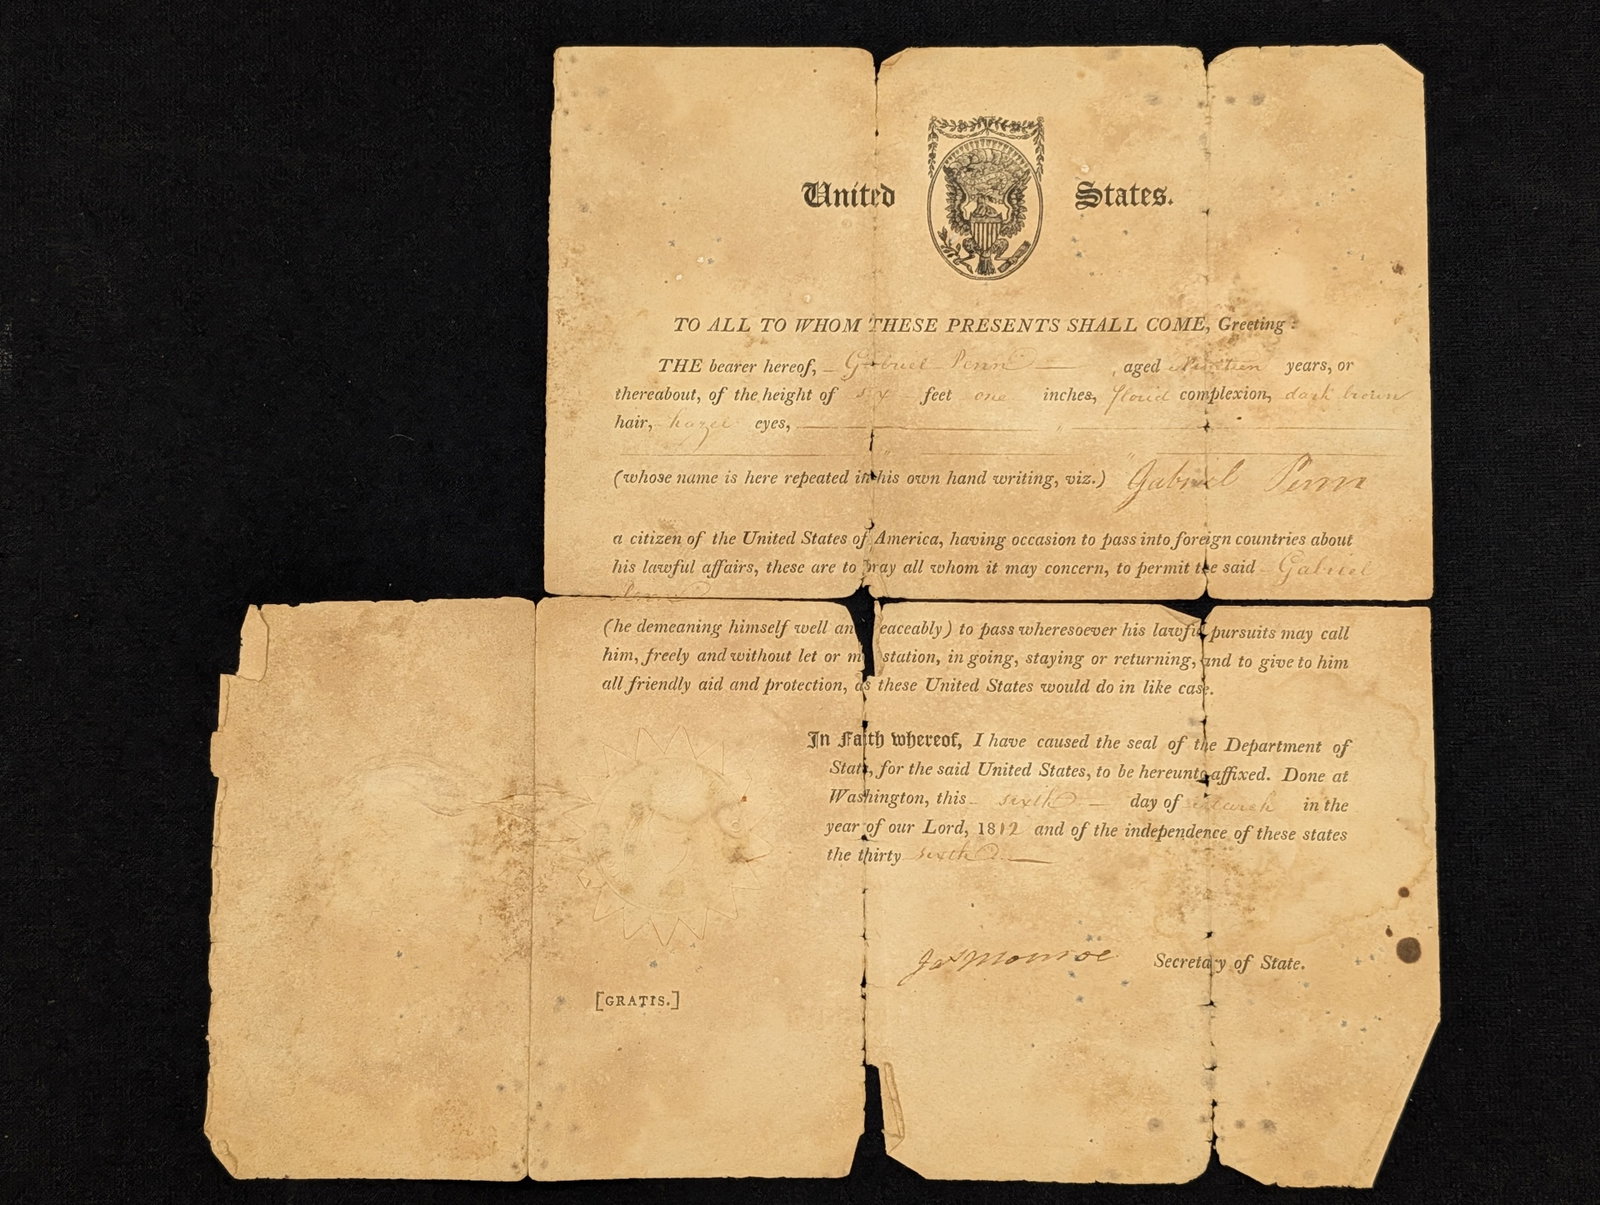 United States.
TO ALL TO WHOM THESE PRESENTS SHALL COME, Greeting:
THE bearer hereof, Gabriel Penn aged Nineteen years, or
thereabout, of the height of six feet one inches, florid complexion, dark brown
hair, hazel eyes,
(whose name is here repeated in his own hand writing, viz.) Gabriel Penn
a citizen of the United States of America, having occasion to pass into foreign countries about
his lawful affairs, these are to pray all whom it may concern, to permit the said Gabriel
Penn
(he demeaning himself well an eaceably) to pass wheresoever his lawful pursuits may call
him, freely and without let or m station, in going, staying or returning, and to give to him
all friendly aid and protection, as these United States would do in like case.
In Faith whereof, I have caused the seal of the Department of
State, for the said United States, to be hereunto affixed. Done at
Washington, this sixth day of March in the
year of our Lord, 1812 and of the independence of these states
the thirty sixth
Jas Monroe Secretary of State.
[GRATIS.]